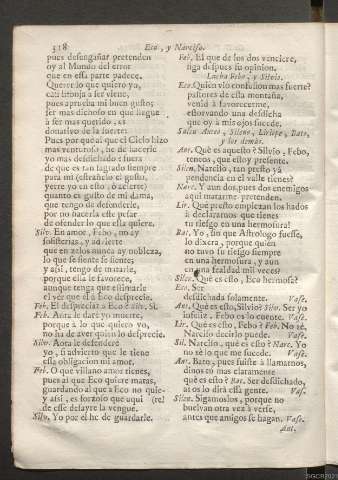 318 Eco, y Narciso.
pues desengañar pretenden
oy al Mundo del error
que en essa parte padece.
Querer lo que quiero yo,
casi lisonja à ser viene,
pues aprueba mi buen gusto;
ser mas dichoso en que llegue
à ser mas querido, es
donativo de la suerte:
Pues por què al que el Cielo hizo
mas venturoso, he de hacerle
yo mas desdichado? fuera
de que es tan sagrado siempre
para mi (estrañelo el gusto,
yerre yo en esto, ò acierte)
quanto es gusto de mi dama,
que tengo de defenderle,
por no hacerla este pesar
de ofender lo que ella quiere.
Silv. En amor, Febo, no ay
sofisterias, y advierte
que en zelos nunca ay nobleza,
lo que se siente se siente;
y assi, tengo de matarle,
porque ella le favorece,
aunque tenga que estimarle
el vèr que èl à Eco desprecie.
Feb. El despreciar à Eco? Silv. Sì.
Feb. Aora le darè yo muerte,
porque à lo que quiero yo,
no ha de aver quien lo desprecie.
Silv. Aora le defenderè
yo, si advierto que le tiene
essa obligacion mi amor.
Feb. O què villano amor tienes,
pues al que Eco quiere matas,
guardando al que à Eco no quiere!
y assi, es forzoso que aqui
de esse desayre la vengue.
Silv. Yo por el he de guardarle.
Feb. El que de los dos venciere,
siga despues su opinion.
Lucha Febo, y Silvio.
Eco. Quièn viò confusion mas fuerte?
pastores de esta montaña,
venid à favorecerme,
estorvando una desdicha
que oy à mis ojos sucede.
Salen Anteo, Sileno, Liriope, Bato,
y los demàs.
Ant. Què es aquesto? Silvio, Febo,
teneos, que estoy presente.
Silen. Narciso, tan presto yà
pendencia en el valle tienes?
Narc. Y aun dos, pues dos enemigos
aqui matarme pretenden.
Lir. Què presto empiezan los hados
à declararnos que tienes
tu riesgo en una hermosura!
Bat. Yo, sin que Astrologo fuesse,
lo dixera, porque quièn
no tuvo su riesgo siempre
en una hermosura, y aun
en una fealdad mil veces?
Silen. Què es esto, Eco hermosa?
Eco. Ser
desdichada solamente. Vase.
Ant. Què es esto, Silvio? Silv. Ser yo
infeliz, Febo os lo cuente. Vase.
Lir. Què es esto, Febo? Feb. No sè,
Narciso decirlo puede. Vase.
Sil. Narciso, què es esto? Narc. Yo
no sè lo que me sucede. Vase.
Ant. Bato, pues fuiste à llamarnos,
dinos tù mas claramente
què es esto? Bat. Ser desdichado,
ai os lo dirà essa gente. Vas.
Silen. Sigamoslos, porque no
buelvan otra vez à verse,
antes que amigos se hagan. Vase.
Ant.